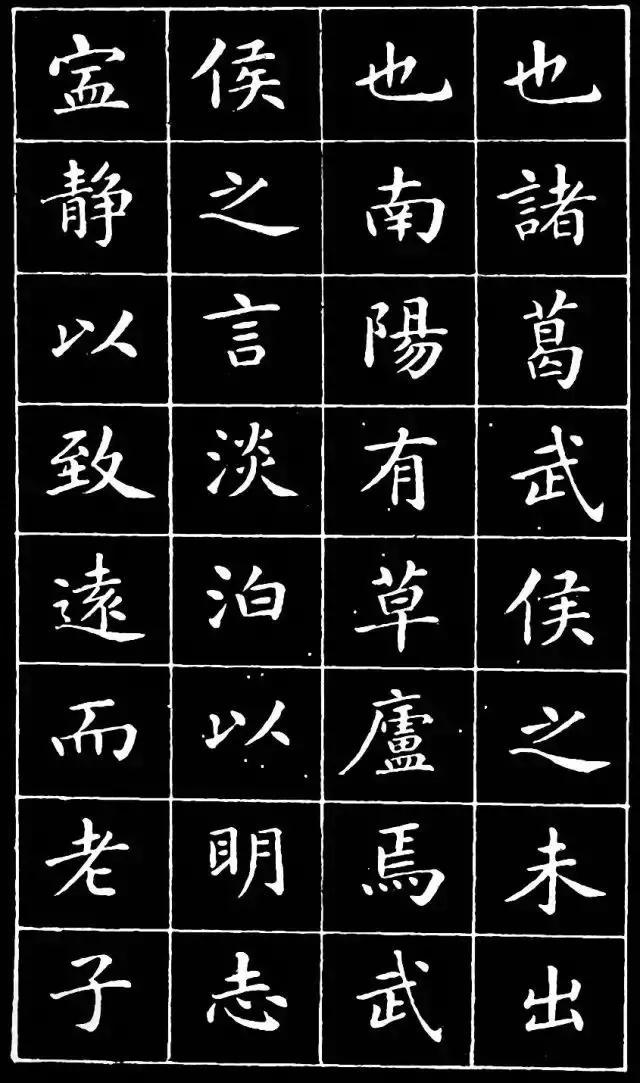 也諸葛武侯之未出
也南陽有草廬焉武
侯之言淡泊以眀志
寍静以致遠而老子